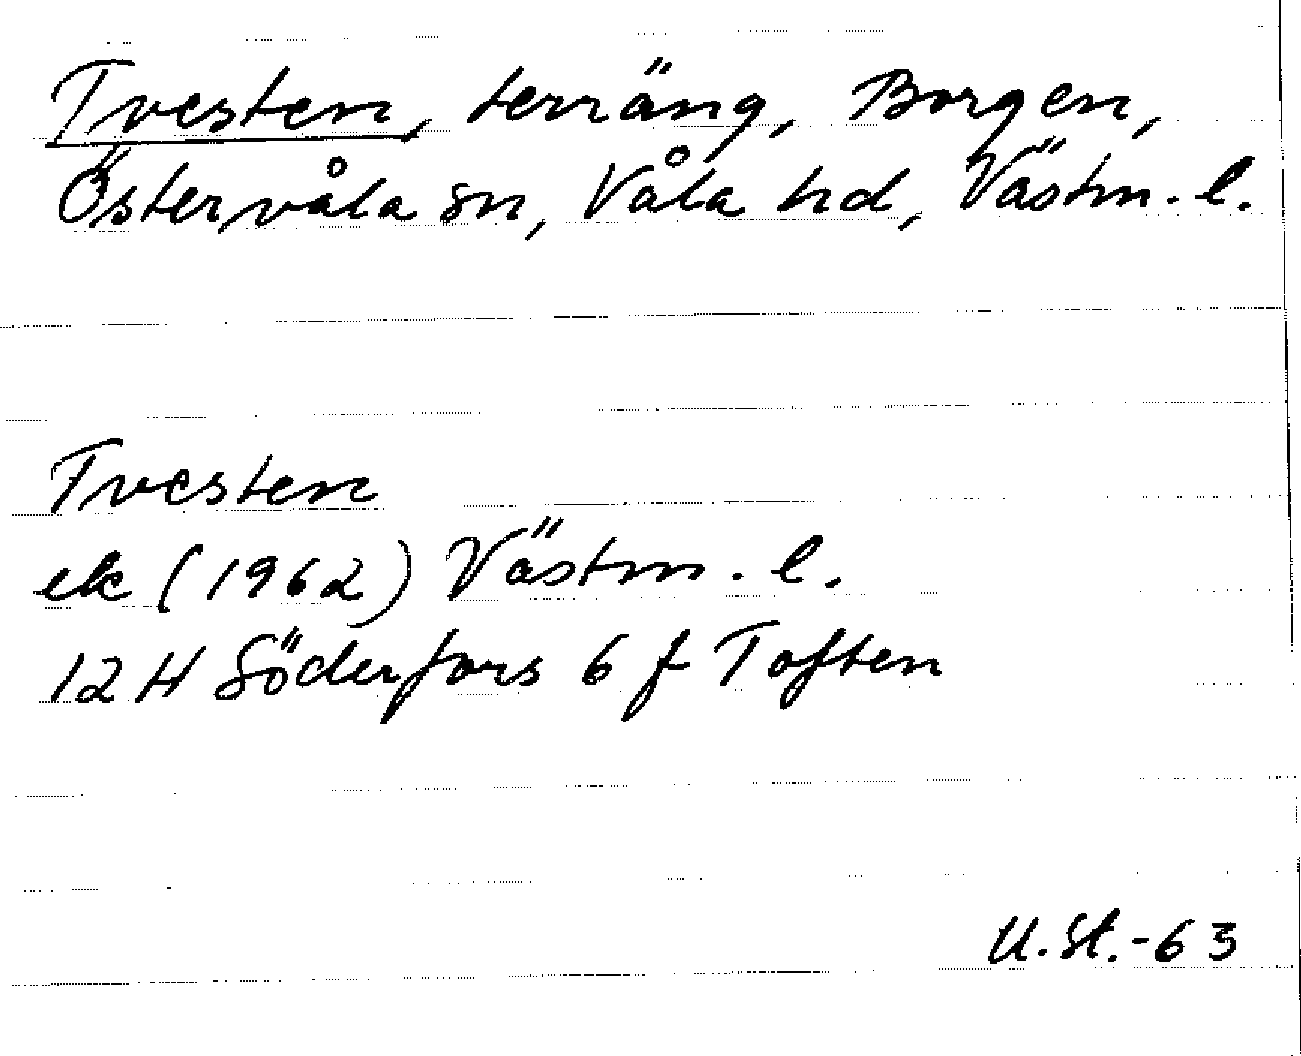 Tvesten, terräng, Borgen,
Östervåla sn, Våla hd, Västm. l.
Tvesten
ek (1962) Västm. l.
12 H Söderfors 6 f Toften
U.St.-63